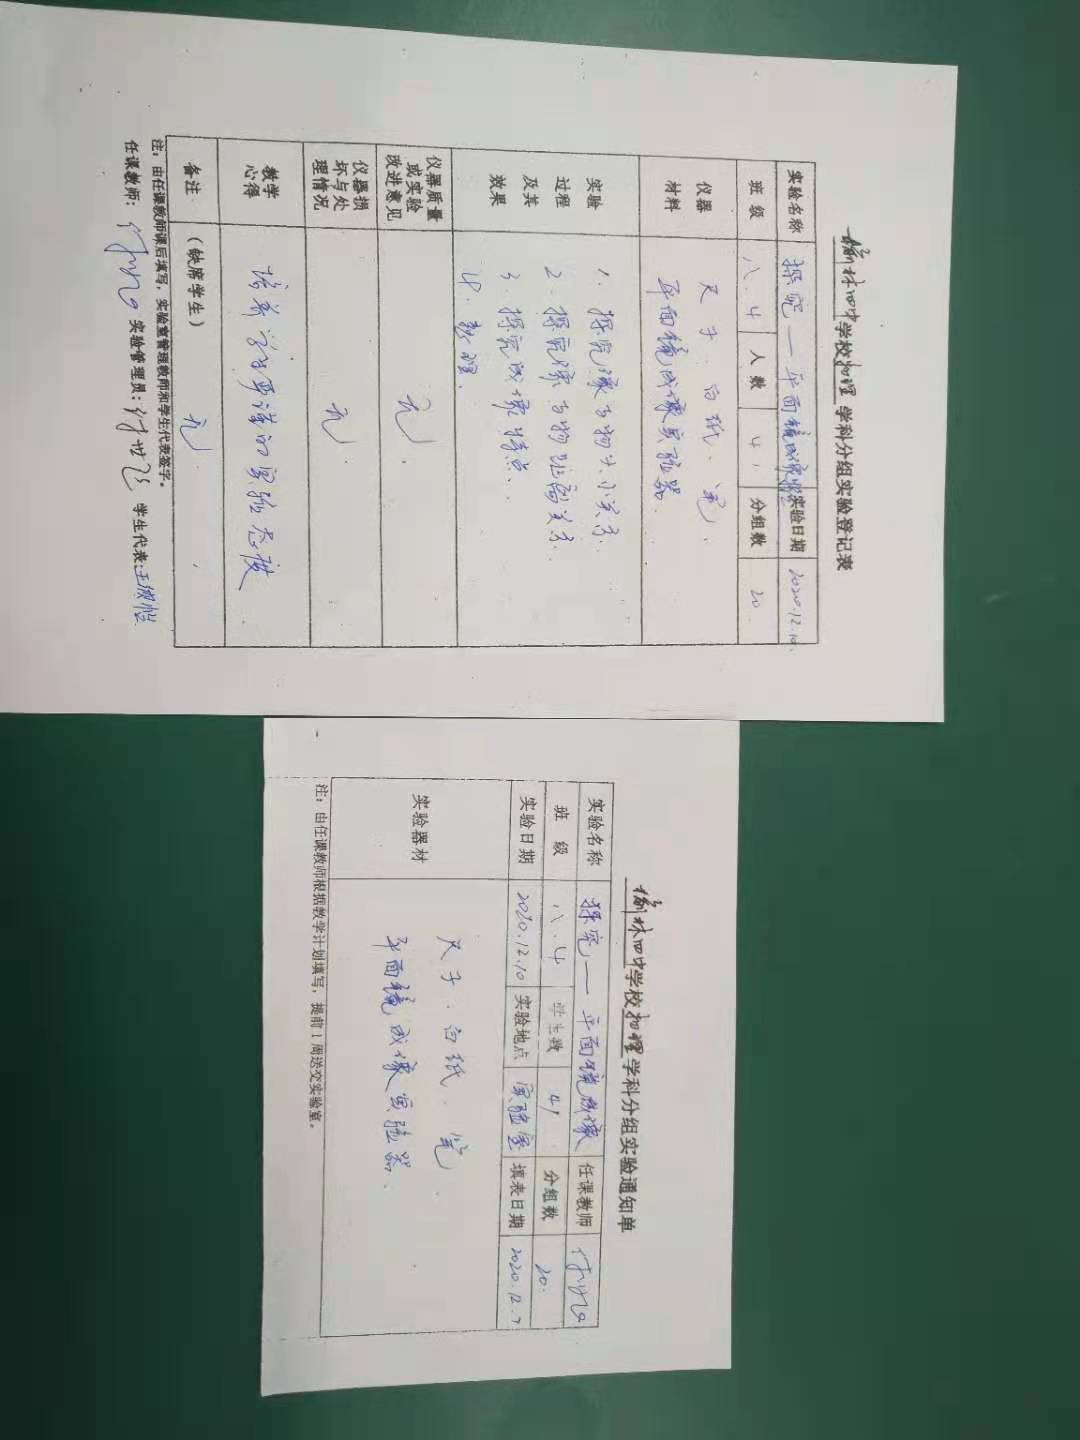 榆林四中学校物理学科分组实验登记表
实验名称 探究——平面镜成像 实验日期 2020.12.10.
班 级 八.4 人 数 41 分组数 20
仪器材料 尺子.白纸.笔.
平面镜成像实验器.
实验过程及其效果 1.探究像与物大小关系.
2.探究像与物距离关系.
3.探究成像特点.
4.整理.
仪器质量或实验改进意见 无.
仪器损坏与处理情况 无.
教学心得 培养学生严谨的实验态度
备注 (缺席学生) 无.
注:由任课教师课后填写,实验室管理教师和学生代表签字。
任课教师: 实验管理员: 学生代表:
榆林四中学校物理学科分组实验通知单
实验名称 探究——平面镜成像 任课教师
班 级 八.4 学生数 41 分组数 20.
实验日期 2020.12.10 实验地点 实验室 填表日期 2020.12.7
实验器材 尺子.白纸.笔.
平面镜成像实验器.
注:由任课教师根据教学计划填写,提前1周送交实验室。